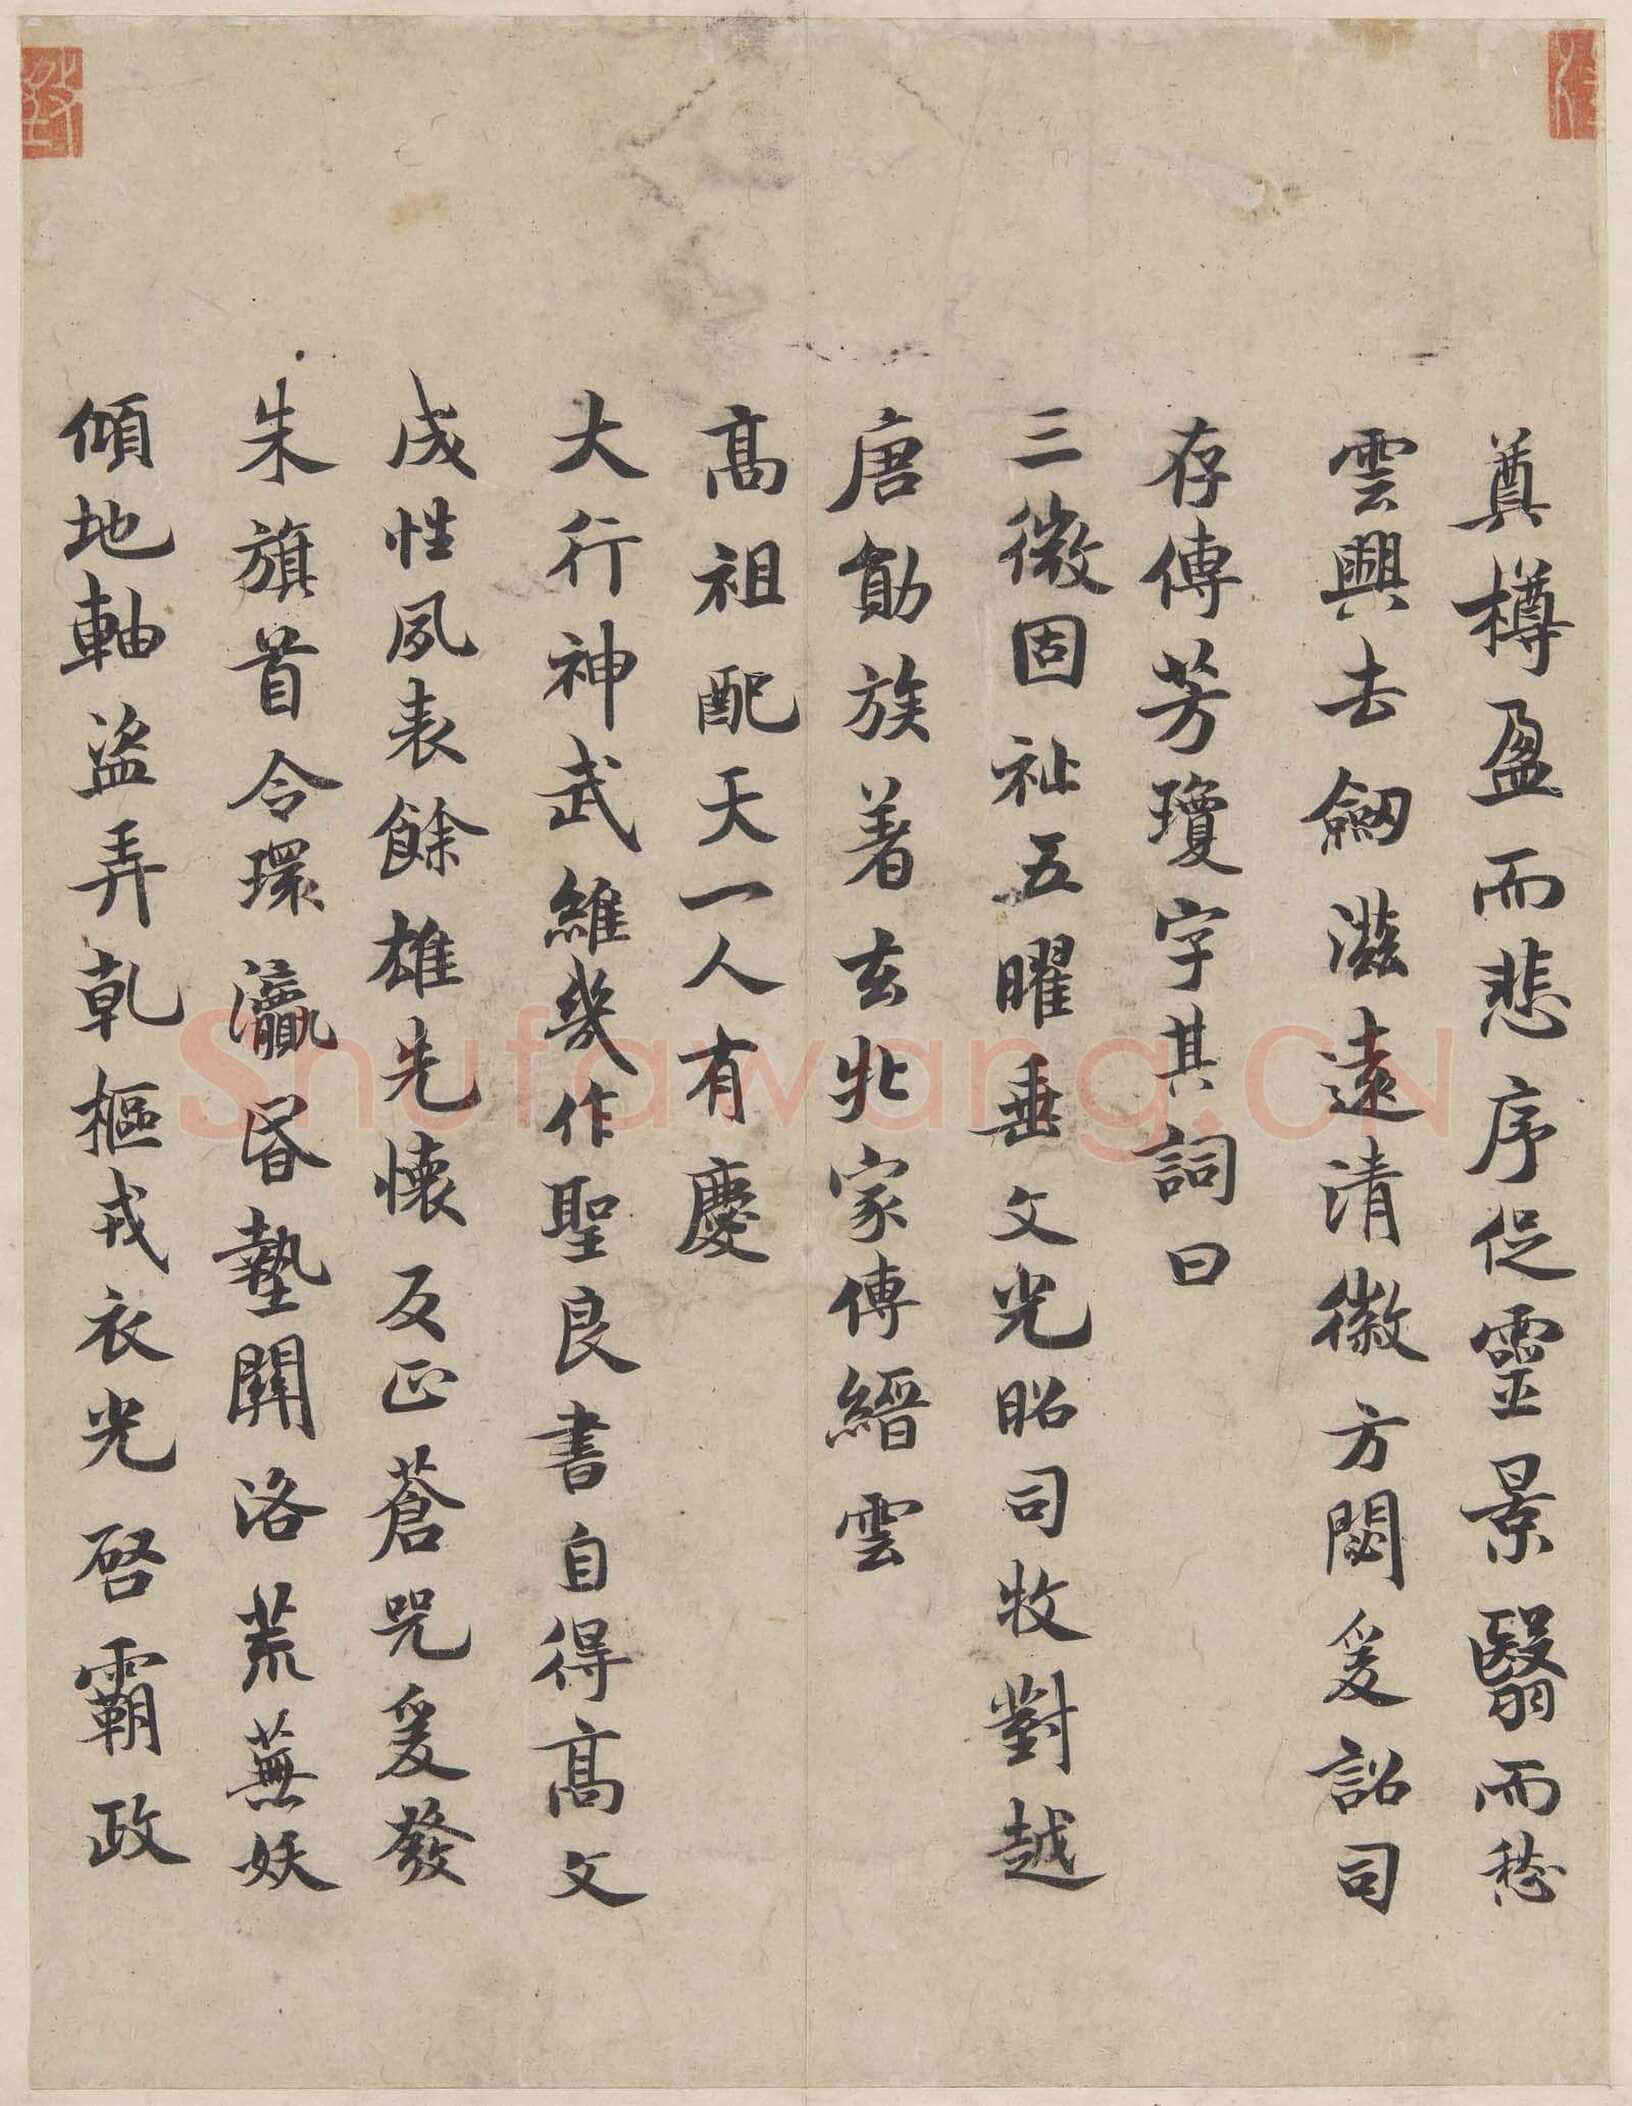 奠樽盈而悲序促靈景翳而愁
雲興去劒滋遠清徽方閟爰詔司
存傳芳瓊字其詞曰
三微固祉五曜垂文光昭司牧對越
唐勛族著玄牝家傳縉雲
髙祖配天一人有慶
大行神武維幾作聖良書自得髙文
成性夙表餘雄先懷反正蒼兕爰發
朱旗首令環瀛昏墊關洛荒蕪妖
傾地軸盜弄乾樞戎衣光啓霸政
Shufawang.CN